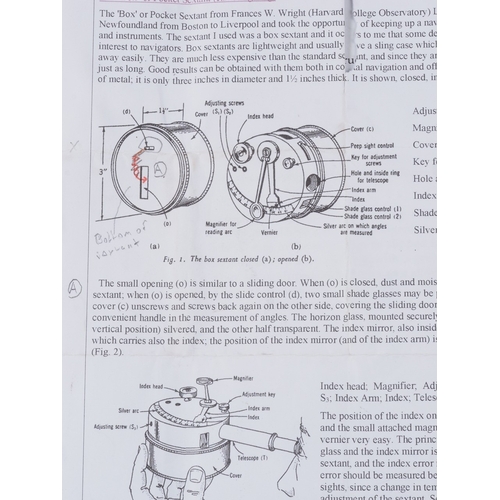 The 'Box' or Pocket Sextant from Frances W. Wright (Harvard College Observatory)
Newfoundland from Boston to Liverpool and took the opportun of keeping up a nav
and instruments. The sextant I used was a box sextant and it occ to me that some de
interest to navigators. Box sextants are lightweight and usually ve a sling case which
away easily. They are much less expensive than the standard sextant, and since they ar
just as long. Good results can be obtained with them both in co al navigation and off
of metal; it is only three inches in diameter and 1½ inches thick. It is shown, closed, in
Adjusting screws
(d)
1½"
Cover (S₁) (S₂)
Index head
Cover (c)
Peep sight control
Key for adjustment
screws
Hole and inside ring
for telescope
Index arm
Index
Shade glass control (1)
Shade glass control (2)
Silver arc on which angles
are measured
3"
(A)
(o)
Magnifier for
reading arc
Vernier
Bottom of
sextant
(a)
(b)
Fig. 1. The box sextant closed (a); opened (b).
Adjus
Magn
Cover
Key fo
Hole a
Index
Shade
Silver
(A)
The small opening (o) is similar to a sliding door. When (o) is closed, dust and mois
sextant; when (o) is opened, by the slide control (d), two small shade glasses may be
cover (c) unscrews and screws back again on the other side, covering the sliding door
convenient handle in the measurement of angles. The horizon glass, mounted securely
vertical position) silvered, and the other half transparent. The index mirror, also insid
which carries also the index; the position of the index mirror (and of the index arm) is
(Fig. 2).
Magnifier
Index head
Adjustment key
Silver arc
Index arm
Index
Adjusting screw (S₂)
Telescope (T)
Cover
Index head; Magnifier; Adj
S₂; Index Arm; Index; Teles
The position of the index on
and the small attached magn
vernier very easy. The princ
glass and the index mirror is
sextant, and the index error
error should be measured be
sights, since a change in tem
adjustment of the sextant. S